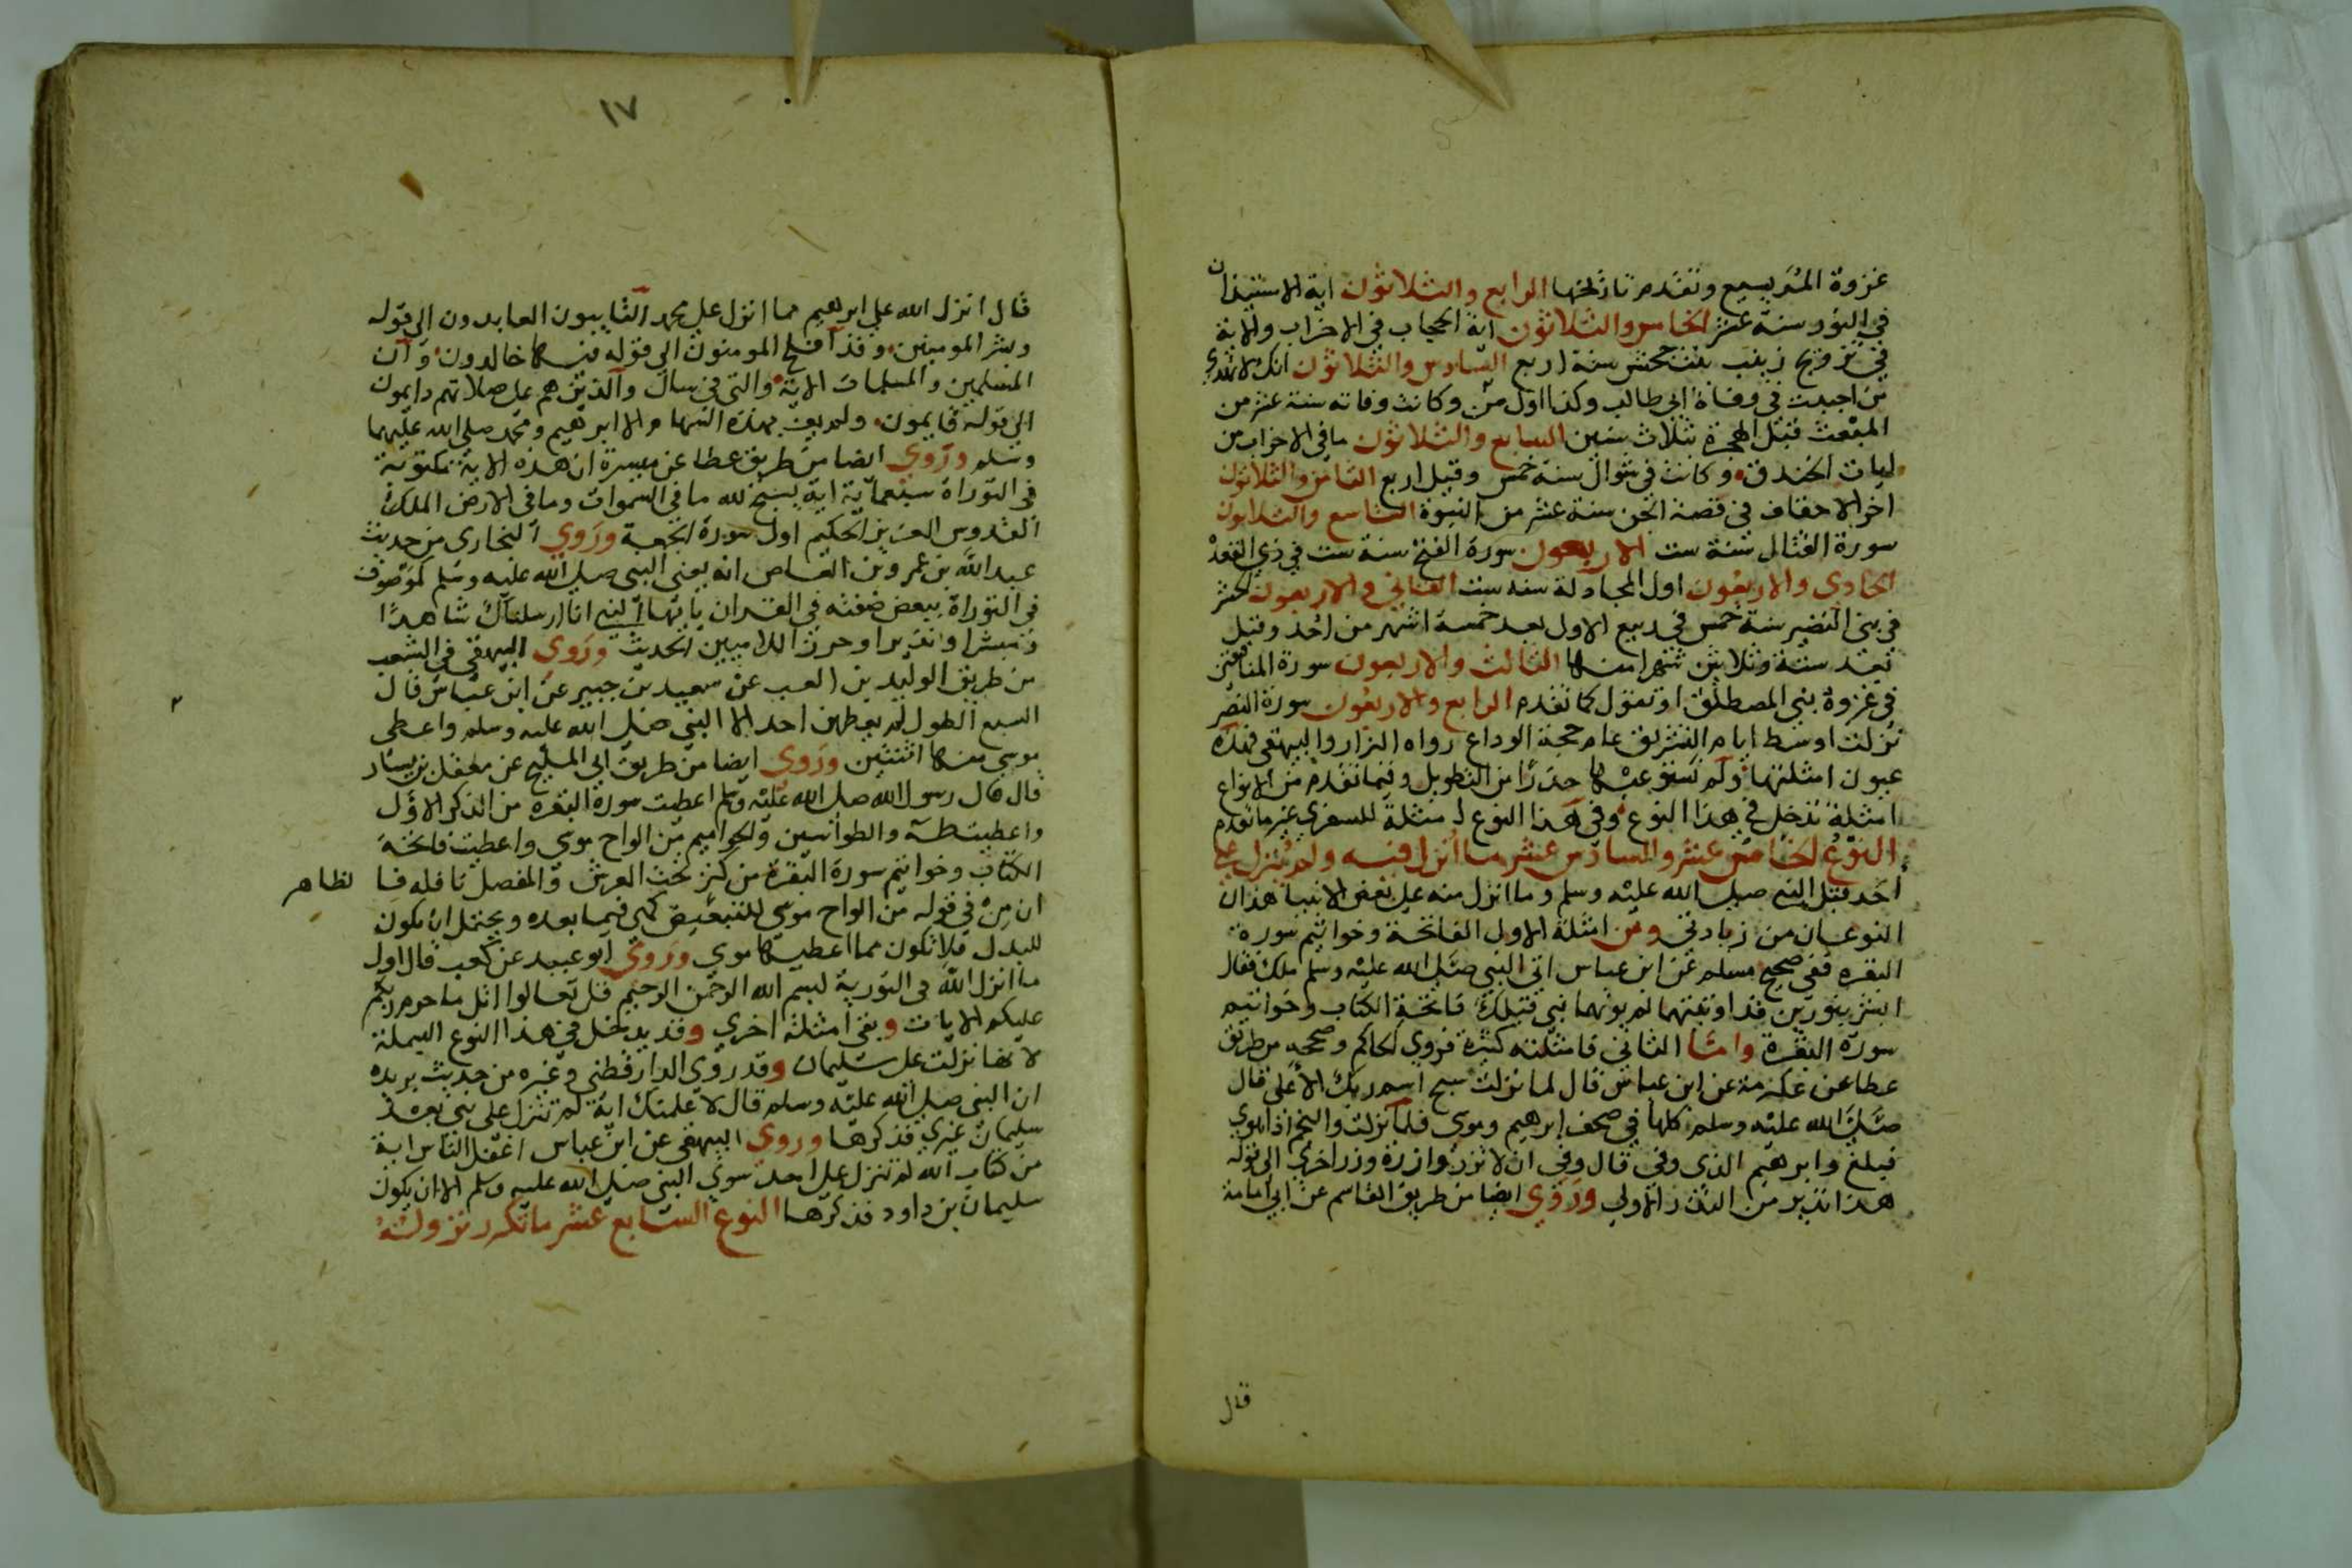 غزوة المريسيع وتقدم تاريخها الرابع والثلاثون اية الاستيذان
في النور سنة عشر الخامس والثلاثون اية الحجاب في الاحزاب والاية
في تزويج زينب بنت جحش سنة اربع السادس والثلاثون انك لا تهدي
من احببت في وفاة ابي طالب وكذا اول ص وكانت وفاته سنة عشر من
المبعث قبل الهجرة بثلاث سنين السابع والثلاثون ما في الاحزاب من
ايات الخندق وكانت في شوال سنة خمس وقيل اربع الثامن والثلاثون
اخر الاحقاف في قصة الجن سنة عشر من النبوة التاسع والثلاثون
سورة القتال سنة ست الاربعون سورة الفتح سنة ست في ذي القعدة
الحادي والاربعون اول المجادلة سنه ست الثاني والاربعون الحشر
في بني النضير سنة خمس في ربيع الاول بعد خمسة اشهر من احد وقيل
بعد ستة وثلاثين شهرا منها الثالث والاربعون سورة المنافقين
في غزوة بني المصطلق او تبوك كما تقدم الرابع والاربعون سورة النصر
نزلت اوسط ايام التشريق عام حجة الوداع رواه البزار والبيهقي فهذه
عيون امثلتها ولم نستوعبها حذرا من التطويل وفيما تقدم من الانواع
امثلة تدخل في هذا النوع وفي هذا النوع امثلة للسفري غير ما تقدم
النوع الخامس عشر والسادس عشر ما انزل فيه ولم ينزل علي
احد قبل النبي صلي الله عليه وسلم وما انزل منه علي بعض الانبيا هذان
النوعان من زيادتي ومن امثلة الاول الفاتحة وخواتيم سورة
البقره ففي صحيح مسلم عن ابن عباس اتي النبي صلي الله عليه وسلم ملك فقال
ابشر بنورين قد اوتيتهما لم يوتهما نبي قبلك فاتحة الكتاب وخواتيم
سورة البقرة واما الثاني فامثلته كثيرة فروي الحاكم وصححه من طريق
عطا عن عكرمة عن ابن عباس قال لما نزلت سبح اسم ربك الاعلي قال
صلي الله عليه وسلم كلها في صحف ابرهيم وموسي فلما نزلت والنجم اذا هوي
فبلغ وابرهيم الذي وفي قال وفي ان لا تزر وازرة وزر اخري الي قوله
هذا نذير من النذر الاولي وروي ايضا من طريق القاسم عن ابي امامة
قال
١٧
قال انزل الله علي ابرهيم مما انزل علي محمد التايبون العابدون الي قوله
وبشر المومنين وقد افلح المومنون الي قوله فيها خالدون وان
المسلمين والمسلمات الاية والتي في سال والذين هم علي صلاتهم دايمون
الي قوله قايمون ولم يف بهذه السهام الا ابرهيم ومحمد صلي الله عليهما
وسلم وروي ايضا من طريق عطا عن ميسرة ان هذه الاية مكتوبة
في التوراة سبعماية اية يسبح لله ما في السموات وما في الارض الملك
القدوس العزيز الحكيم اول سورة الجمعة وروي البخاري من حديث
عبد الله بن عمرو بن العاص انه يعني النبي صلي الله عليه وسلم لموصوف
في التوراة ببعض صفته في القران يا ايها النبي انا ارسلناك شاهدا
ومبشرا ونذيرا وحرزا للاميين الحديث وروي البيهقي في الشعب
من طريق الوليد بن العب عن سعيد بن جبير عن ابن عباس قال
السبع الطول لم يعطهن احد الا النبي صلي الله عليه وسلم واعطي
موسي منها اثنتين وروي ايضا من طريق ابي المليح عن معقل بن يسار
قال قال رسول الله صلي الله عليه وسلم اعطيت سورة البقره من الذكر الاول
واعطيت طه والطواسين والحواميم من الواح موسي واعطيت فاتحة
الكتاب وخواتيم سورة البقرة من كنز تحت العرش والمفصل نافله فا لظاهر
ان من في قوله من الواح موسي للتبعيض كهي فيما بعده ويحتمل ان يكون
للبدل فلا تكون مما اعطيها موسي وروي ابو عبيد عن كعب قال اول
ما انزل الله في التورية بسم الله الرحمن الرحيم قل تعالوا اتل ما حرم ربكم
عليكم الايات وبقي امثلة اخري وقد يدخل في هذا النوع البسملة
لانها نزلت علي سليمان وقد روي الدارقطني وغيره من حديث بريده
ان النبي صلي الله عليه وسلم قال لا علمنك اية لم تنزل علي نبي بعد
سليمان غيري فذكرها وروي البيهقي عن ابن عباس اغفل الناس اية
من كتاب الله لم تنزل علي احد سوي النبي صلي الله عليه وسلم الا ان يكون
سليمان بن داود فذكرها النوع السابع عشر ما تكرر نزوله